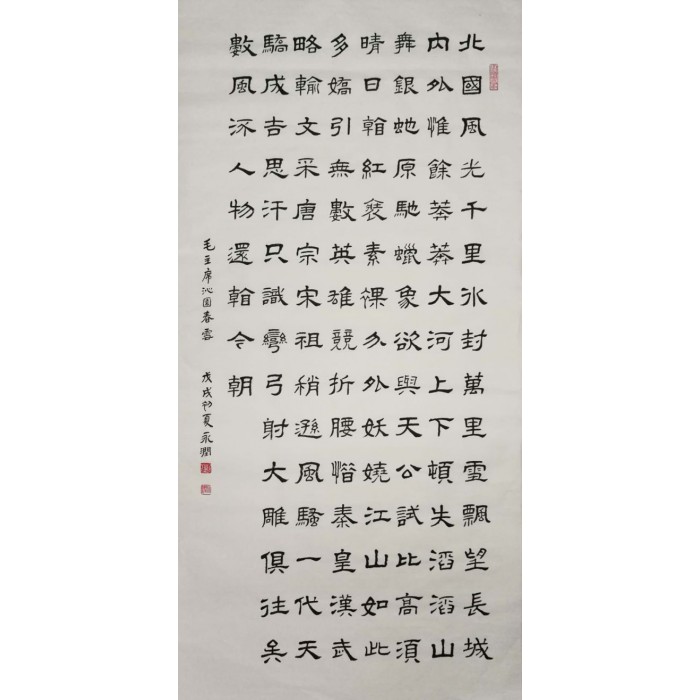 北國風光千里冰封萬里雪飄望長城
內外惟餘莽莽大河上下頓失滔滔山
舞銀蛇原馳蠟象欲與天公試比高須
晴日看紅裝素裹分外妖嬈江山如此
多嬌引無數英雄競折腰惜秦皇漢武
略輸文采唐宗宋祖稍遜風騷一代天
驕成吉思汗只識彎弓射大雕俱往矣
數風流人物還看今朝
毛主席沁园春雪 戊戌初夏永潤